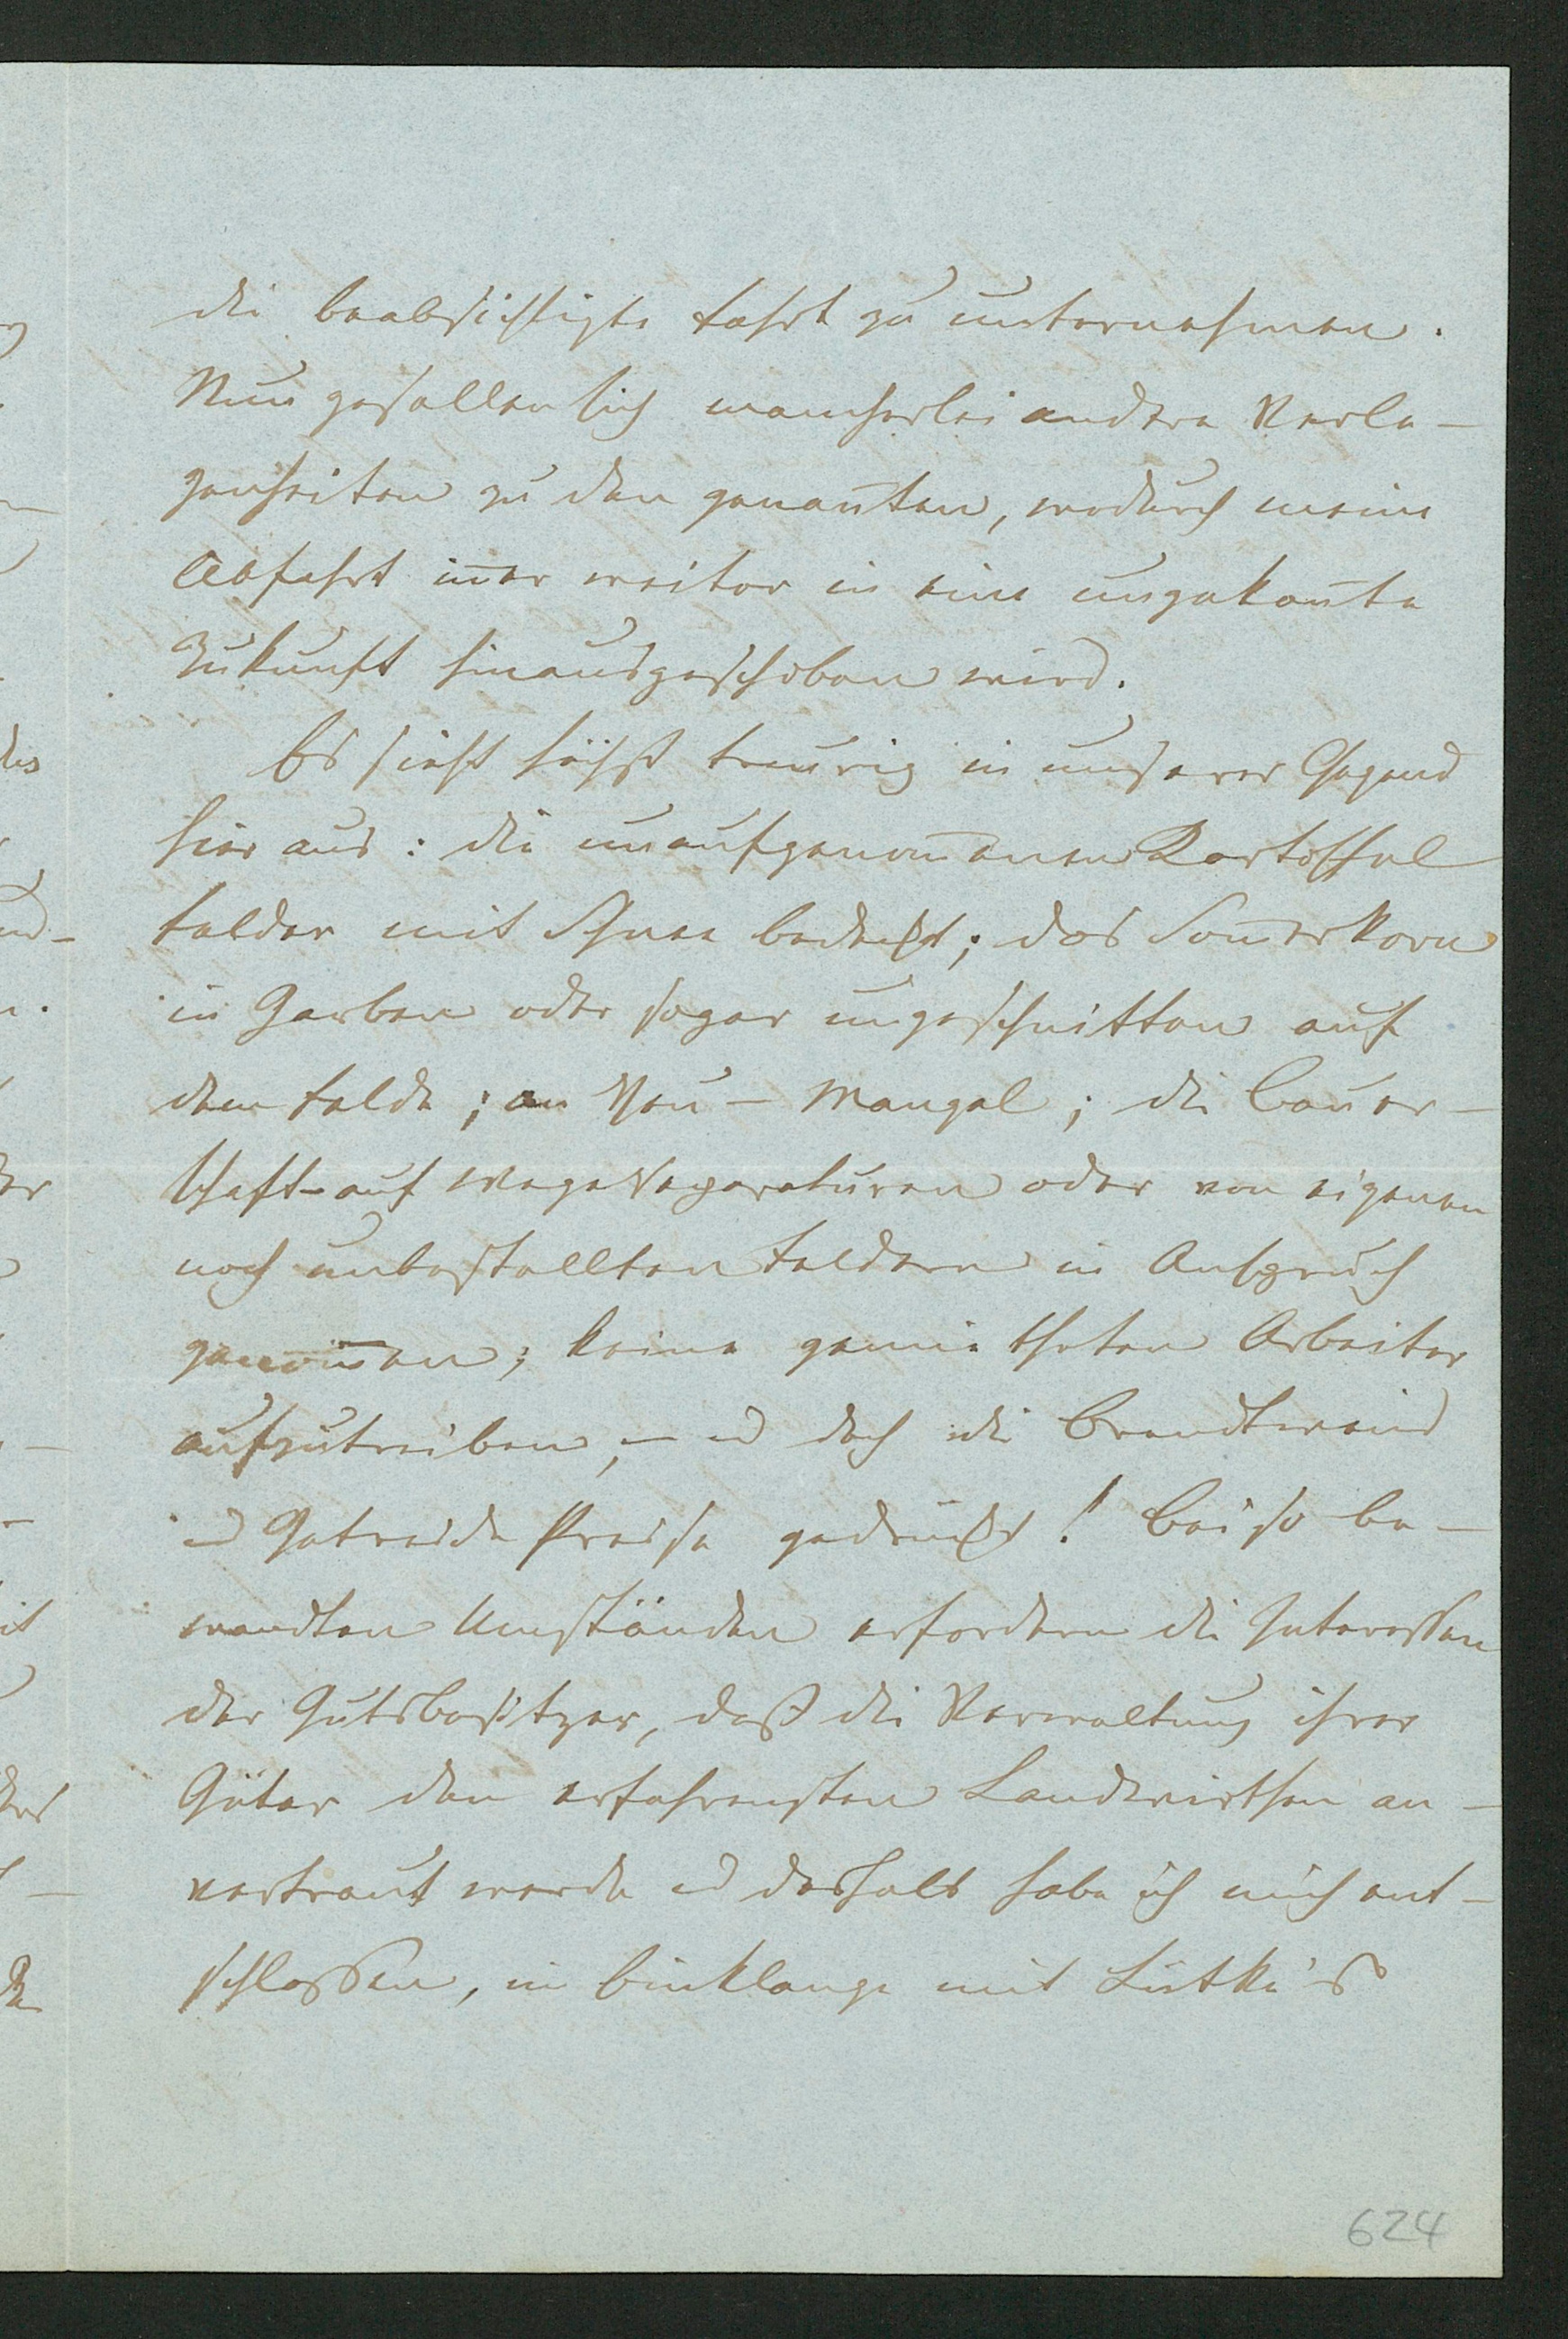 die beabsichtigte Fahrt zu unternehmen.
Nun gesellen sich mancherlei andere Verle-
genheiten zu den genan̄ten, wodurch meine
Abfahrt im̄er weiter in eine ungekan̄te
Zukunft hinausgeschoben wird.
Es sieht höchst traurig in unserer Gegend
hier aus: die unaufgenom̄enen Kartoffel
felder mit Schnee bedeckt; das Som̄erkorn
in Garben oder sogar ungeschnitten auf
dem Felde; an Heu-Mangel; die Bauer-
schaft auf Wegereparaturen oder von eigenen
noch unbestellten Feldern in Anspruch
genom̄en; keine gemietheten Arbeiter
aufzutreiben, – u doch die Brandtwein
u Getreide Preise gedrückt! Bei so be-
wandten Umständen erfordern die Interessen
der Gutsbesitzer, daß die Verwaltung ihrer
Güter den erfahrensten Landwirthen an-
vertraut werde u deshalb habe ich mich ent-
schlossen, im Einklange mit Lütke's
624